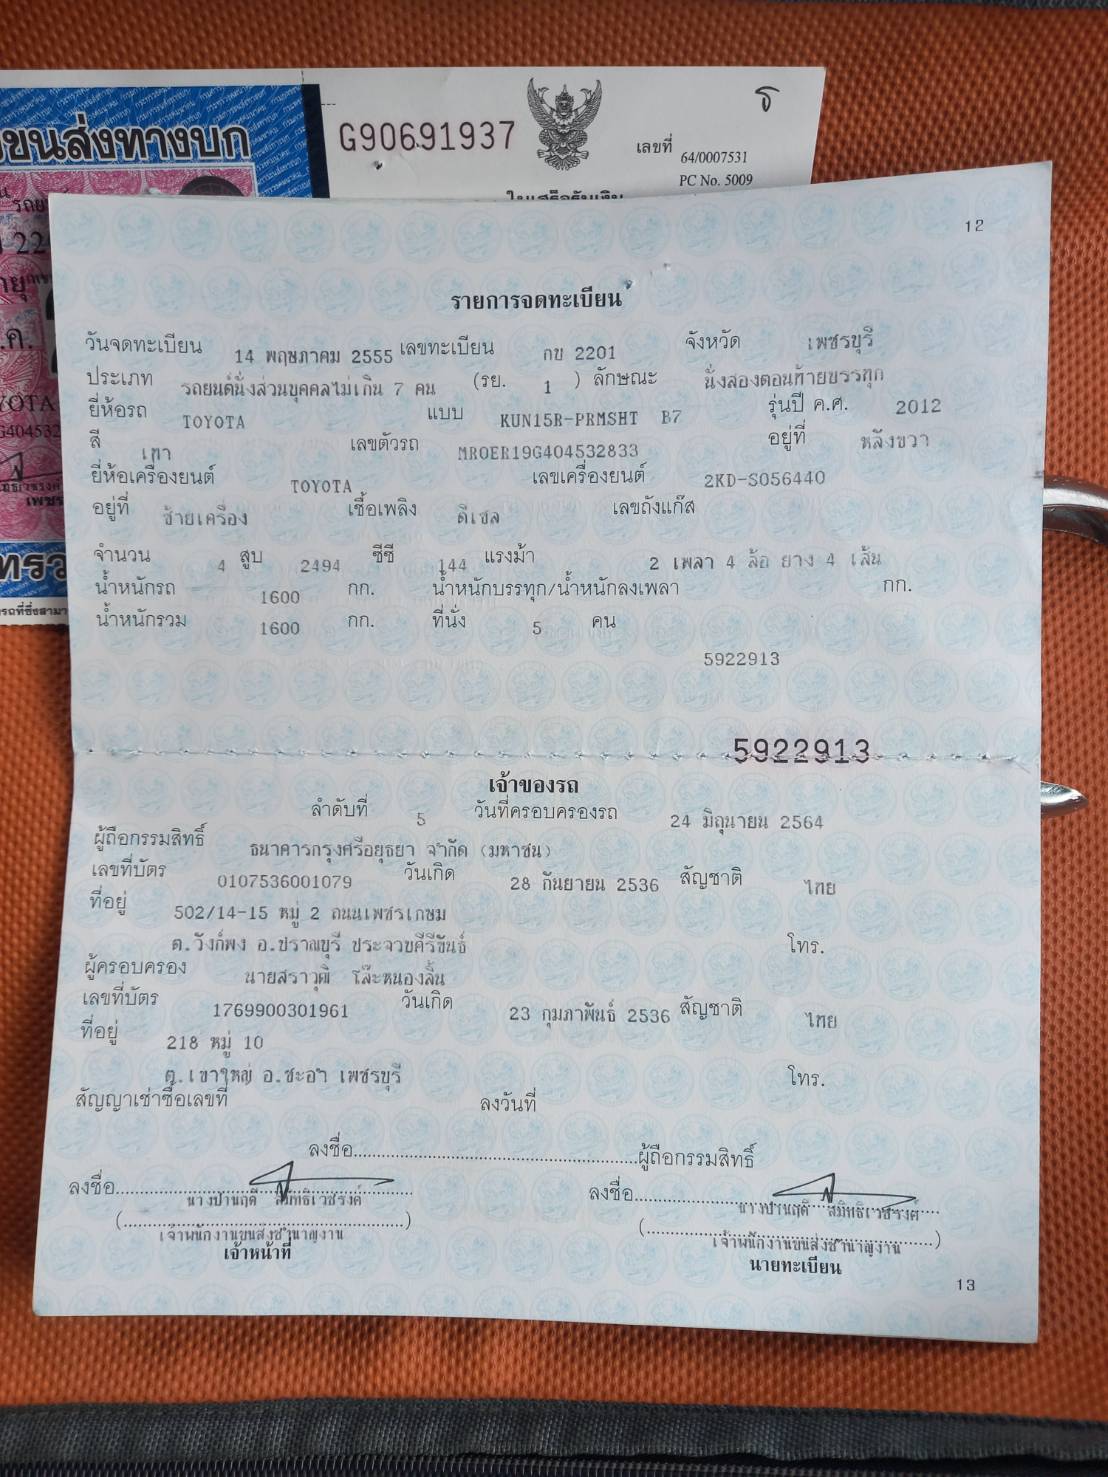 ขนส่งทางบก
G90691937
เลขที่ 64/0007531
PC No. 5009
ใบเสร็จรับเงิน
12
รายการจดทะเบียน
วันจดทะเบียน 14 พฤษภาคม 2555 เลขทะเบียน กข 2201 จังหวัด เพชรบุรี
ประเภท รถยนต์นั่งส่วนบุคคลไม่เกิน 7 คน (รย. 1 ) ลักษณะ นั่งสองตอนท้ายบรรทุก
ยี่ห้อรถ TOYOTA แบบ KUN15R-PRMSHT B7 รุ่นปี ค.ศ. 2012
สี เทา เลขตัวรถ MROER19G404532833 อยู่ที่ หลังขวา
ยี่ห้อเครื่องยนต์ TOYOTA เลขเครื่องยนต์ 2KD-S056440
อยู่ที่ ซ้ายเครื่อง เชื้อเพลิง ดีเซล เลขถังแก๊ส
จำนวน 4 สูบ 2494 ซีซี 144 แรงม้า 2 เพลา 4 ล้อ ยาง 4 เส้น
น้ำหนักรถ 1600 กก. น้ำหนักบรรทุก/น้ำหนักลงเพลา กก.
น้ำหนักรวม 1600 กก. ที่นั่ง 5 คน
5922913
5922913
เจ้าของรถ
ลำดับที่ 5 วันที่ครอบครองรถ 24 มิถุนายน 2564
ผู้ถือกรรมสิทธิ์ ธนาคารกรุงศรีอยุธยา จำกัด (มหาชน)
เลขที่บัตร 0107536001079 วันเกิด 28 กันยายน 2536 สัญชาติ ไทย
ที่อยู่ 502/14-15 หมู่ 2 ถนนเพชรเกษม
ต.วังก์พง อ.ปราณบุรี ประจวบคีรีขันธ์ โทร.
ผู้ครอบครอง นายสราวุฒิ โล๊ะหนองลิ้น
เลขที่บัตร 1769900301961 วันเกิด 23 กุมภาพันธ์ 2536 สัญชาติ ไทย
ที่อยู่ 218 หมู่ 10
ต.เขาใหญ่ อ.ชะอำ เพชรบุรี โทร.
สัญญาเช่าซื้อเลขที่ ลงวันที่
ลงชื่อ ผู้ถือกรรมสิทธิ์
ลงชื่อ ลงชื่อ
นางปานฤดี สมิทธิเวชรงค์ นางปานฤดี สมิทธิเวชรงค์
( ) ( )
เจ้าพนักงานขนส่งชำนาญงาน เจ้าพนักงานขนส่งชำนาญงาน
เจ้าหน้าที่ นายทะเบียน
13